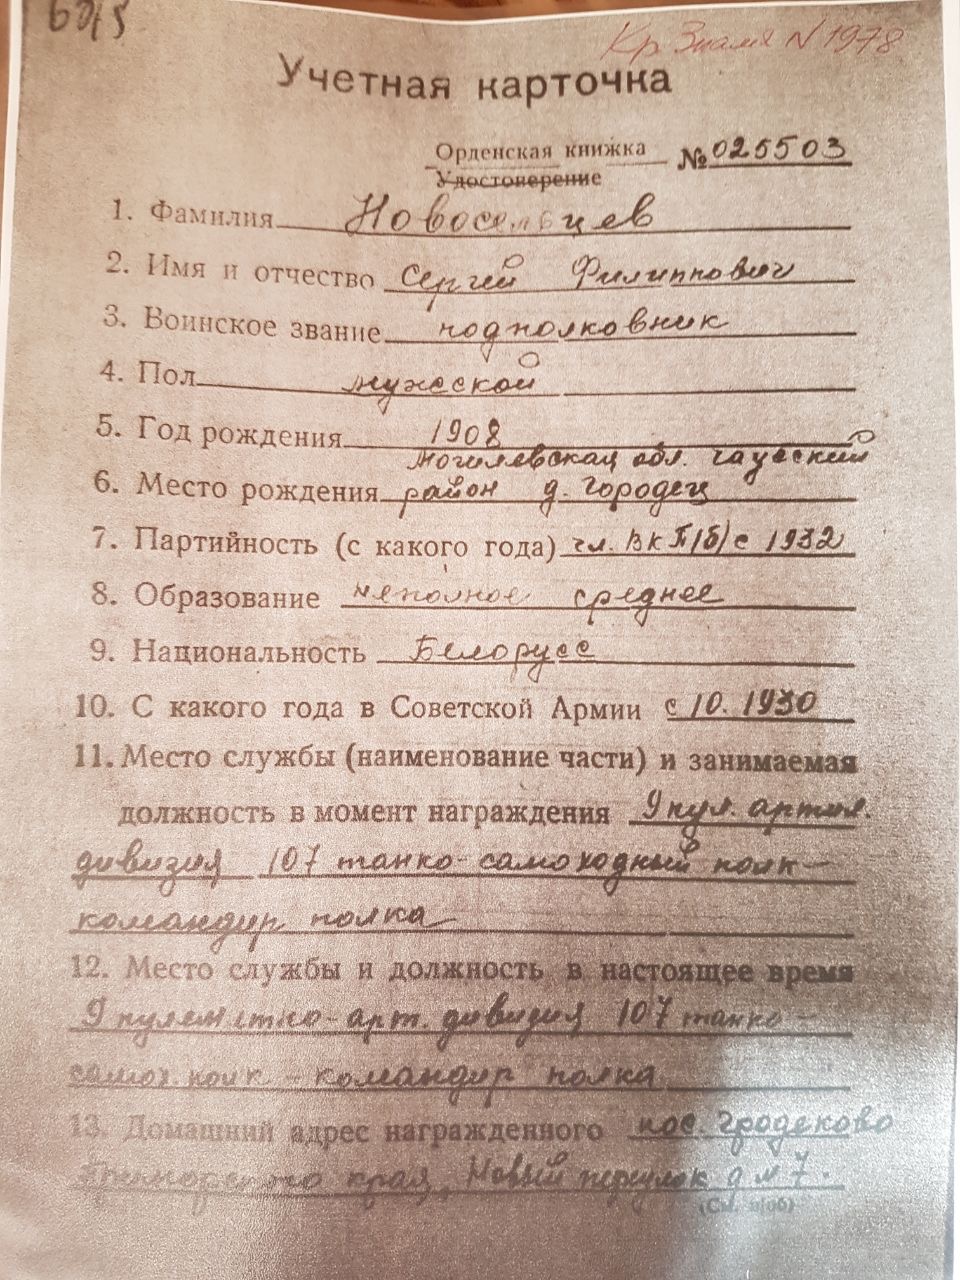 Кр Знамя N 1978
Учетная карточка
Орденская книжка № 025503
Удостоверение
1. Фамилия Новосельцев
2. Имя и отчество Сергей Филиппович
3. Воинское звание подполковник
4. Пол мужской
5. Год рождения 1908
Могилевская обл. Чаусский
6. Место рождения район д. Городец
7. Партийность (с какого года) чл. ВКП(б) с 1932
8. Образование неполное среднее
9. Национальность Белорусс
10. С какого года в Советской Армии с 10. 1930
11. Место службы (наименование части) и занимаемая
должность в момент награждения 9 пул. артил.
дивизия 107 танко-самоходный полк-
командир полка
12. Место службы и должность в настоящее время
9 пулеметно-арт. дивизия 107 танко-
самох. полк - командир полка
13. Домашний адрес награжденного пос. Гродеково
Приморского края, Новый переулок д № 7.
(См. н/об)